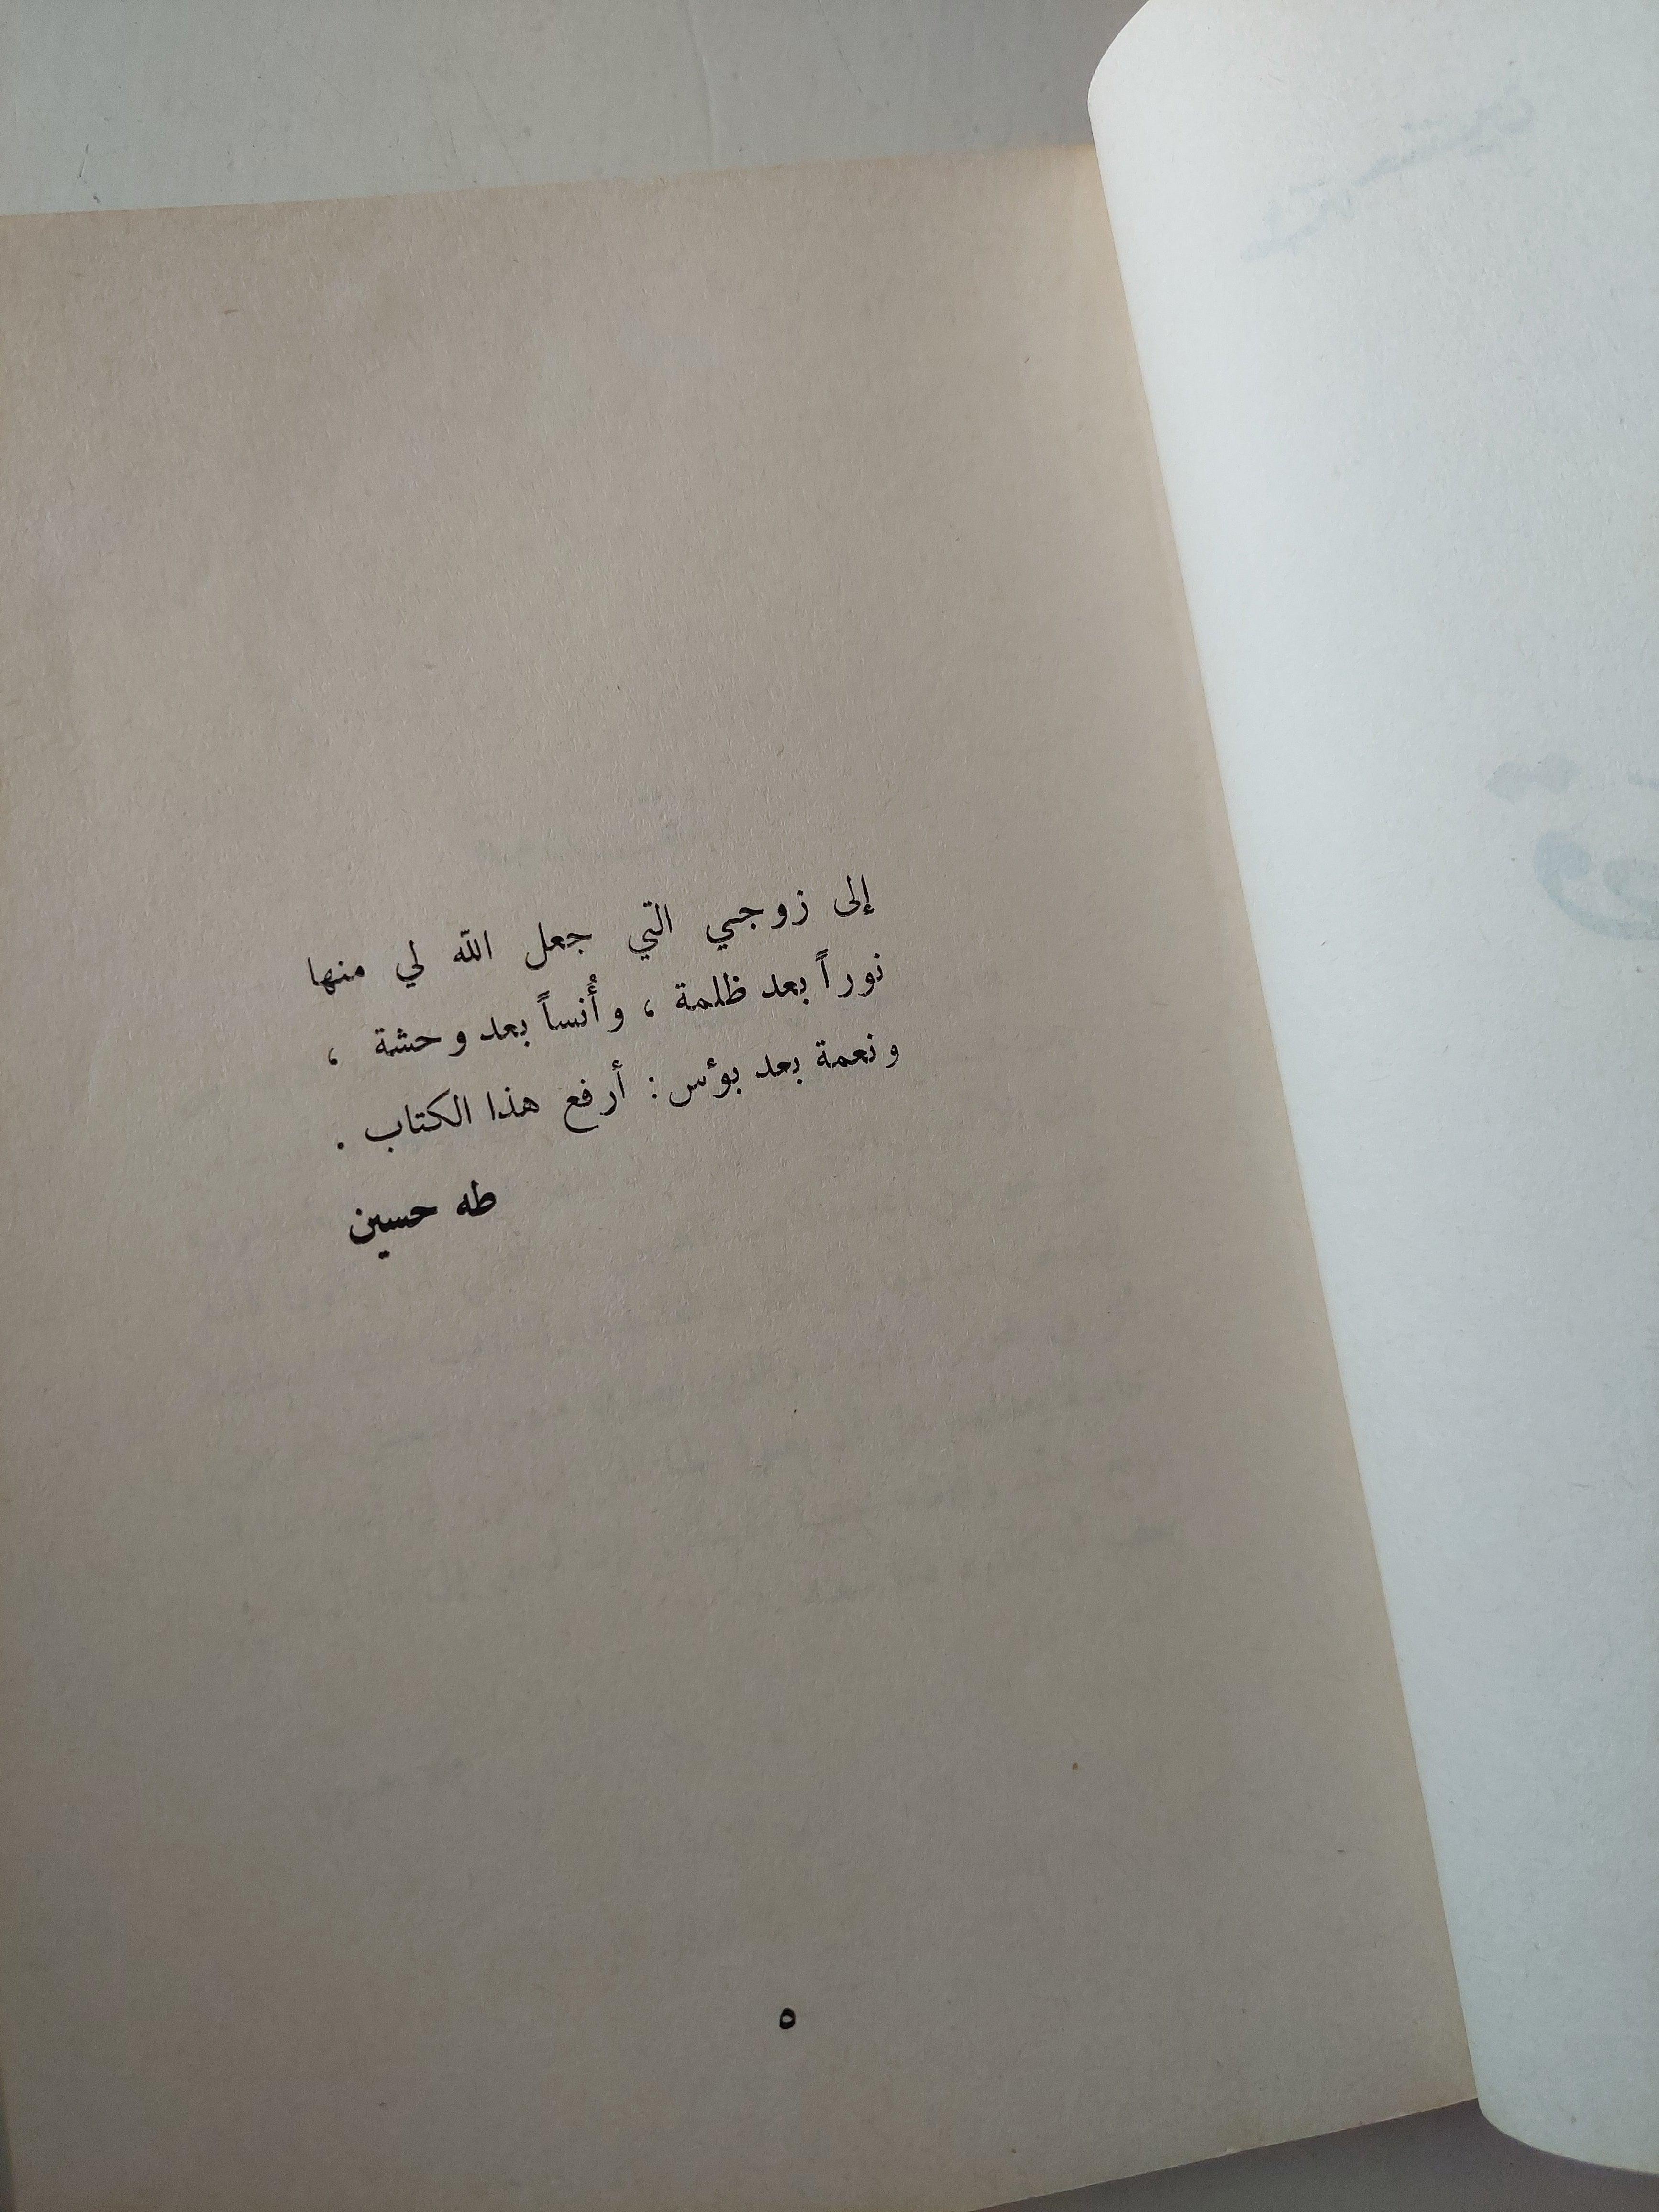 إلى زوجي التي جعل الله لي منها
نوراً بعد ظلمة ، وأُنساً بعد وحشة ،
ونعمة بعد بوٴس : أرفع هذا الكتاب .
طه حسين
٥